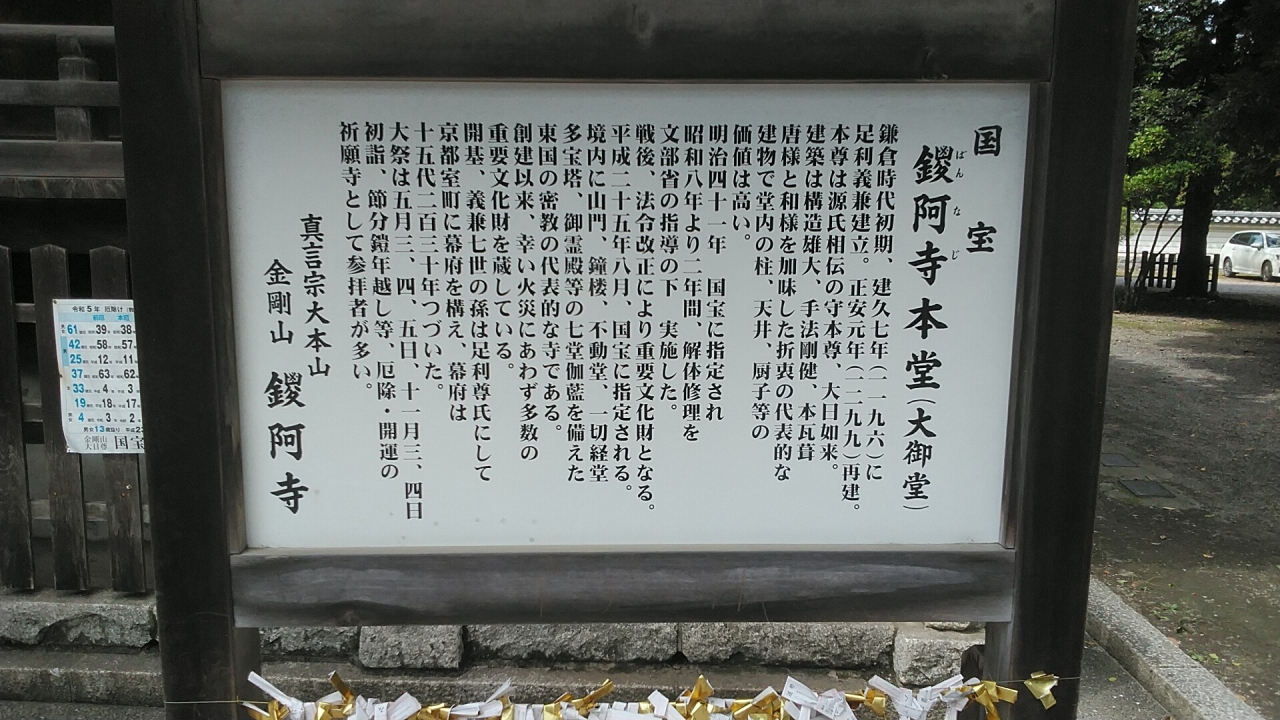 国宝
鑁阿寺本堂(大御堂)
ばんなじ
鎌倉時代初期、建久七年(一一九六)に
足利義兼建立。正安元年(一二九九)再建。
本尊は源氏相伝の守本尊、大日如来。
建築は構造雄大、手法剛健、本瓦葺
唐様と和様を加味した折衷の代表的な
建物で堂内の柱、天井、厨子等の
価値は高い。
明治四十一年 国宝に指定され
昭和八年より二年間、解体修理を
文部省の指導の下 実施した。
戦後、法令改正により重要文化財となる。
平成二十五年八月、国宝に指定される。
境内に山門、鐘楼、不動堂、一切経堂
多宝塔、御霊殿等の七堂伽藍を備えた
東国の密教の代表的な寺である。
創建以来、幸い火災にあわず多数の
重要文化財を蔵している。
開基、義兼七世の孫は足利尊氏にして
京都室町に幕府を構え、幕府は
十五代二百三十年つづいた。
大祭は五月三、四、五日、十一月三、四日
初詣、節分鎧年越し等、厄除・開運の
祈願寺として参拝者が多い。
真言宗大本山
金剛山 鑁阿寺
令和5年 厄除け
61 39 38
42 昭和58 昭和57
25 平成12 平成11
37 昭和63 昭和62
33 平成4 平成3
19 平成18 平成17
4 令和3 令和2
男女13歳
金剛山
大日尊 国宝